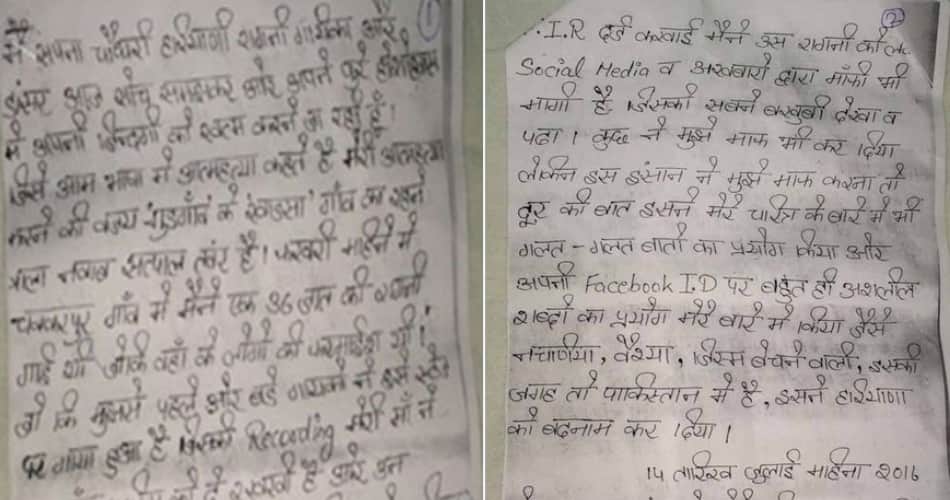 1
मैं सपना चौधरी हरियाणी रागनी गायिका और
डांसर आज सोच समझकर और अपने पूरे होशोहवास
में अपनी जिन्दगी को खत्म करने जा रही हूँ।
जिसे आम भाषा में आत्महत्या कहते है मेरी आत्महत्या
करने की वजय गुड़गाँव के खांडसा गाँव का रहने
वाला नवाब सतपाल तंवर है। फरवरी महिने में
चक्करपुर गाँव में मैंने एक 36 जात की रागनी
गाई थी जोकि वहाँ के लोगो की फरमाईश थी।
जो कि मुझसे पहले और बडे गायको ने इसे स्टेज
पर गाया हुआ है जिसकी Recording मेरी माँ ने
रखी है और उन
2
I.R दर्ज करवाई मैंने उस रागनी को ले
Social Media व अखबारो द्वारा माँफी भी
मांगी है जिसको सबने बखूबी देखा व
पढा। कुछ ने मुझे माफ भी कर दिया
लेकिन इस इंसान ने मुझे माफ करना तो
दूर की बात इसने मेरे चरित्र के बारे में भी
गलत-गलत बातो का प्रयोग किया और
अपनी Facebook I.D पर बहुत ही अशलील
शब्दो का प्रयोग मेरे बारे में किया जैसे
नचाणिया, वैश्या, जिस्म बेचने वाली, इसकी
जगह तो पाकिस्तान में है, इसने हरियाणा
को बदनाम कर दिया।
14 तारिख जुलाई महिना 2016